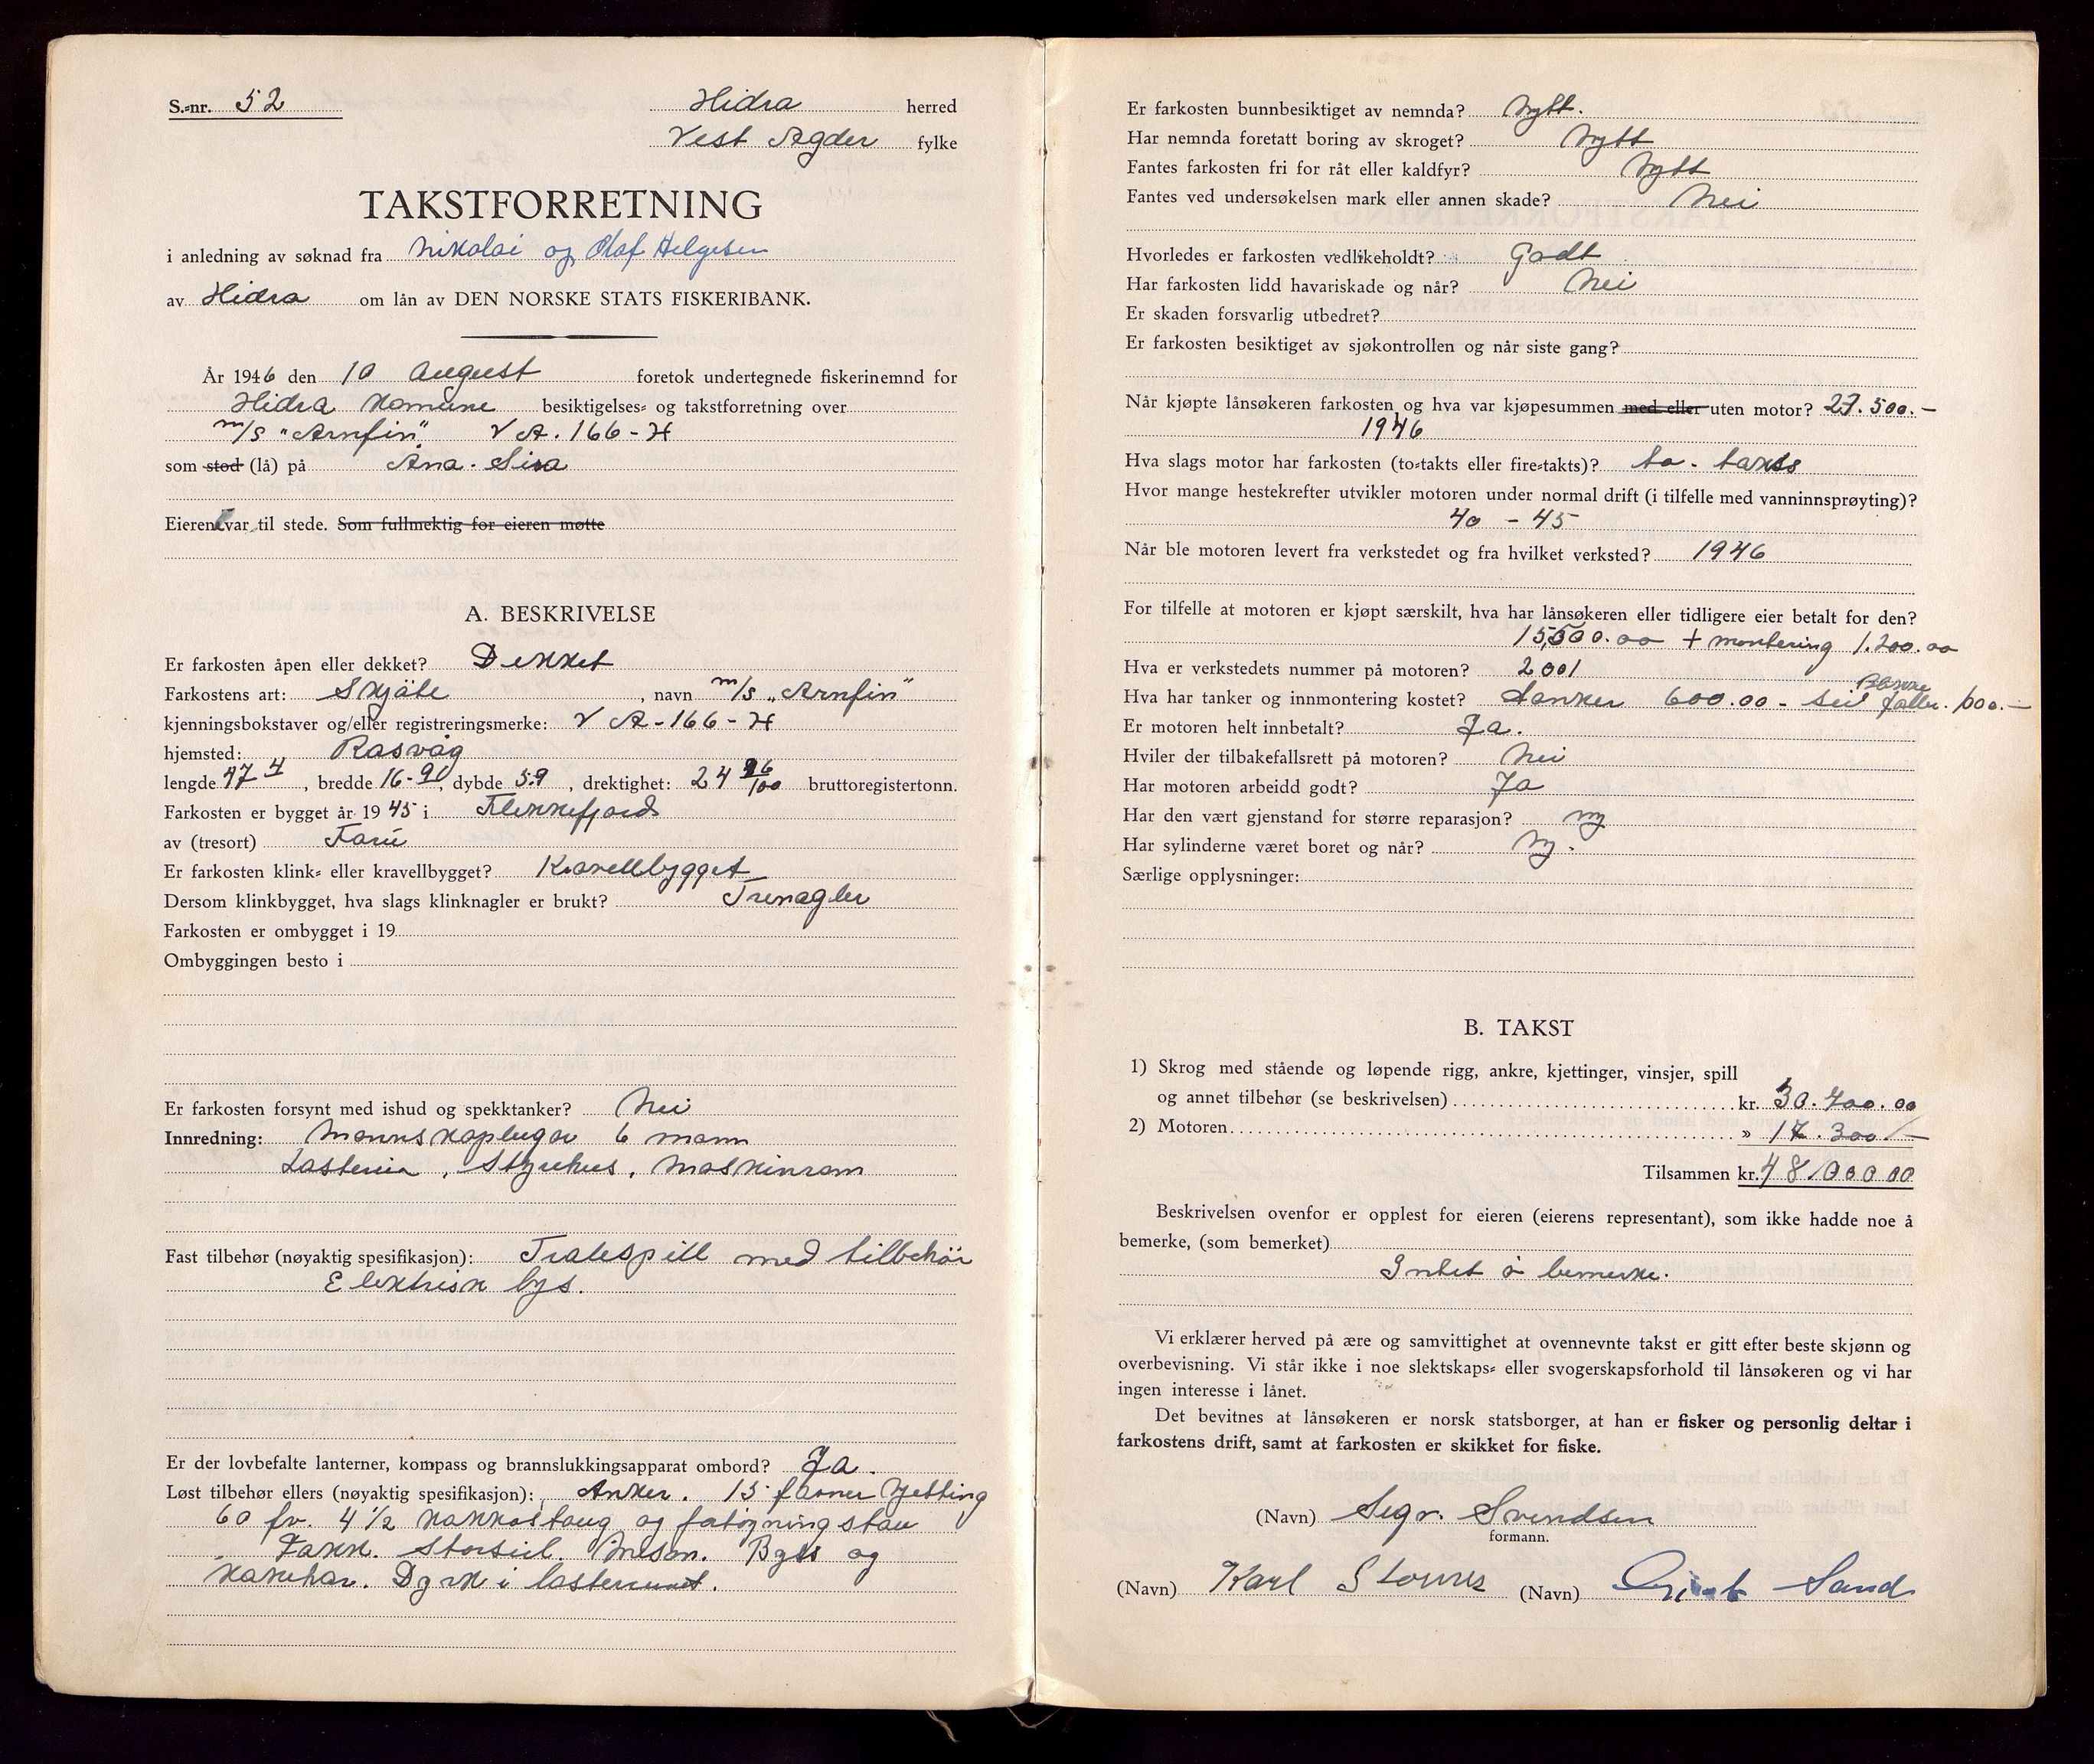 S.-nr. 52
Hidra herred
Vest Agder fylke
TAKSTFORRETNING
i anledning av søknad fra Nikolai og Olaf Helgesen
av Hidra om lån av DEN NORSKE STATS FISKERIBANK.
År 1946 den 10 August foretok undertegnede fiskerinemnd for
Hidra Komune besiktigelses- og takstforretning over
m/s "Arnfin" V A. 166 - H
som stod (lå) på Ana-Sira
Eieren var til stede. Som fullmektig for eieren møtte
A. BESKRIVELSE
Er farkosten åpen eller dekket? Dekket
Farkostens art: Skjöte, navn m/s "Arnfin"
kjenningsbokstaver og/eller registreringsmerke: V A - 166 - H
hjemsted: Rasvåg
lengde 47 4, bredde 16-9, dybde 5.9, drektighet: 24 96/100 bruttoregistertonn.
Farkosten er bygget år 1945 i Flekkefjord
av (tresort) Furu
Er farkosten klink- eller kravellbygget? Kravellbygget
Dersom klinkbygget, hva slags klinknagler er brukt? Trenagler
Farkosten er ombygget i 19
Ombyggingen besto i
Er farkosten forsynt med ishud og spekktanker? Nei
Innredning: Mannskaplugar 6 mann
Lasterum, Styrehus, Maskinrom
Fast tilbehør (nøyaktig spesifikasjon): Tralespill med tilbehör
Elektrisk lys.
Er der lovbefalte lanterner, kompass og brannslukkingsapparat ombord? Ja.
Løst tilbehør ellers (nøyaktig spesifikasjon): Anker. 15 favner kjetting
60 fv. 4 1/2 kokkostaug og fortøyning stau
Fokk. Storseil. Mesan. Byss og
Dørk i lasterumet.
Er farkosten bunnbesiktiget av nemnda? Nytt.
Har nemnda foretatt boring av skroget? Nytt
Fantes farkosten fri for råt eller kaldfyr? Nytt
Fantes ved undersøkelsen mark eller annen skade? Nei
Hvorledes er farkosten vedlikeholdt? Godt
Har farkosten lidd havariskade og når? Nei
Er skaden forsvarlig utbedret?
Er farkosten besiktiget av sjøkontrollen og når siste gang?
Når kjøpte lånsøkeren farkosten og hva var kjøpesummen med eller uten motor? 27.500.-
1946
Hva slags motor har farkosten (to-takts eller fire-takts)? to-takts
Hvor mange hestekrefter utvikler motoren under normal drift (i tilfelle med vanninnsprøyting)?
40 - 45
Når ble motoren levert fra verkstedet og fra hvilket verksted? 1946
For tilfelle at motoren er kjøpt særskilt, hva har lånsøkeren eller tidligere eier betalt for den?
15,500.00 + montering 1.200.00
Hva er verkstedets nummer på motoren? 2001
Hva har tanker og innmontering kostet? tanker 600.00 - seil
Er motoren helt innbetalt? Ja.
Hviler der tilbakefallsrett på motoren? Nei
Har motoren arbeidd godt? Ja
Har den vært gjenstand for større reparasjon? ny
Har sylinderne været boret og når? Ny.
Særlige opplysninger:
B. TAKST
1) Skrog med stående og løpende rigg, ankre, kjettinger, vinsjer, spill
og annet tilbehør (se beskrivelsen) kr. 30.700.00
2) Motoren » 17.300 -
Tilsammen kr. 48,000 00
Beskrivelsen ovenfor er opplest for eieren (eierens representant), som ikke hadde noe å
bemerke, (som bemerket)
Intet å bemerke.
Vi erklærer herved på ære og samvittighet at ovennevnte takst er gitt efter beste skjønn og
overbevisning. Vi står ikke i noe slektskaps- eller svogerskapsforhold til lånsøkeren og vi har
ingen interesse i lånet.
Det bevitnes at lånsøkeren er norsk statsborger, at han er fisker og personlig deltar i
farkostens drift, samt at farkosten er skikket for fiske.
(Navn) Segv. Svendsen
formann.
(Navn) Karl (Navn) Sand